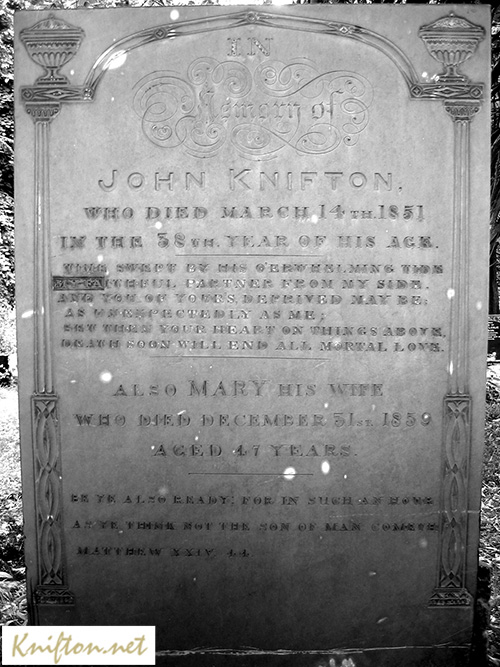 IN
Memory of
JOHN KNIFTON.
WHO DIED MARCH 14TH. 1851
IN THE 38TH. YEAR OF HIS AGE.
TIME SWEPT BY HIS O'ERWHELMING TIDE
MY FAITHFUL PARTNER FROM MY SIDE.
AND YOU OF YOUR'S DEPRIVED MAY BE:
AS UNEXPECTEDLY AS ME;
SET THEN YOUR HEART ON THINGS ABOVE,
DEATH SOON WILL END ALL MORTAL LOVE.
ALSO MARY HIS WIFE
WHO DIED DECEMBER 31ST. 1859
AGED 47 YEARS.
BE YE ALSO READY: FOR IN SUCH AN HOUR
AS YE THINK NOT THE SON OF MAN COMETH
MATTHEW XXIV. 44
Knifton.net